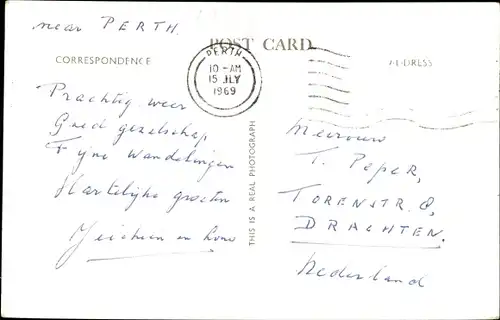 near PERTH.
POST CARD
PERTH
10 - AM
15 JLY
1969
CORRESPONDENCE
Prachtig weer
Goed gezelschap
Fijne wandelingen
Hartelijke groeten
en
THIS IS A REAL PHOTOGRAPH
Mevrouw
T. Peper,
TORENSTR. 8,
DRACHTEN.
Nederland